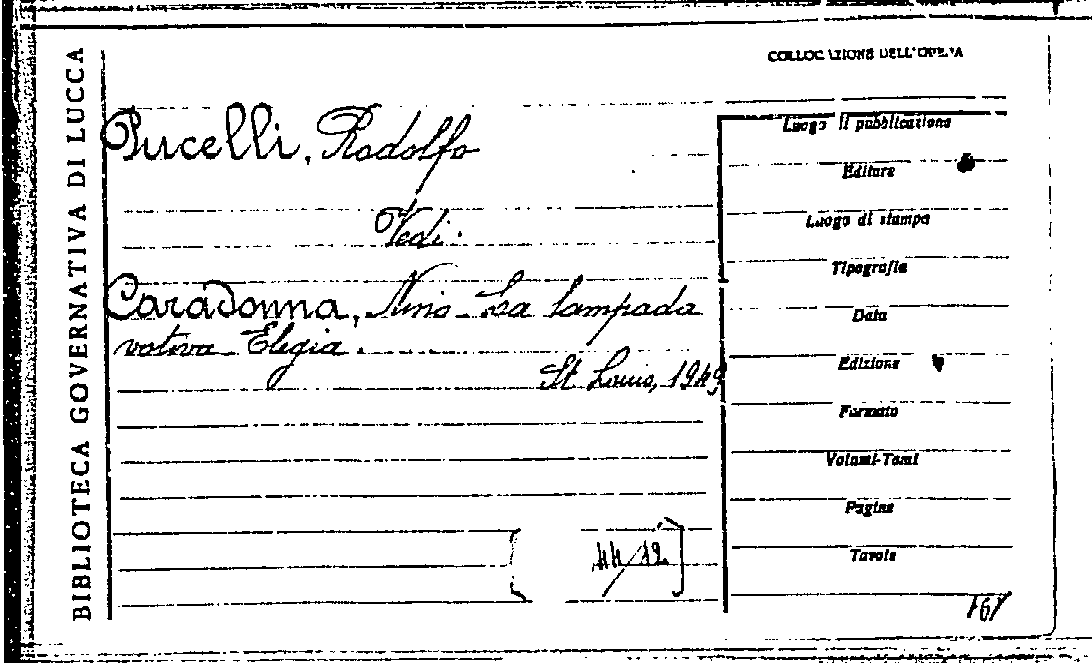 BIBLIOTECA GOVERNATIVA DI LUCCA
COLLOCAZIONE DELL'OPERA
Pucelli, Rodolfo
Vedi:
Caradonna, Nino - La lampada
votiva - Elegia.
St Louis, 1949
[44/12]
Luogo di pubblicazione
Editore
Luogo di stampa
Tipografia
Data
Edizione
Formato
Volumi-Tomi
Pagine
Tavole